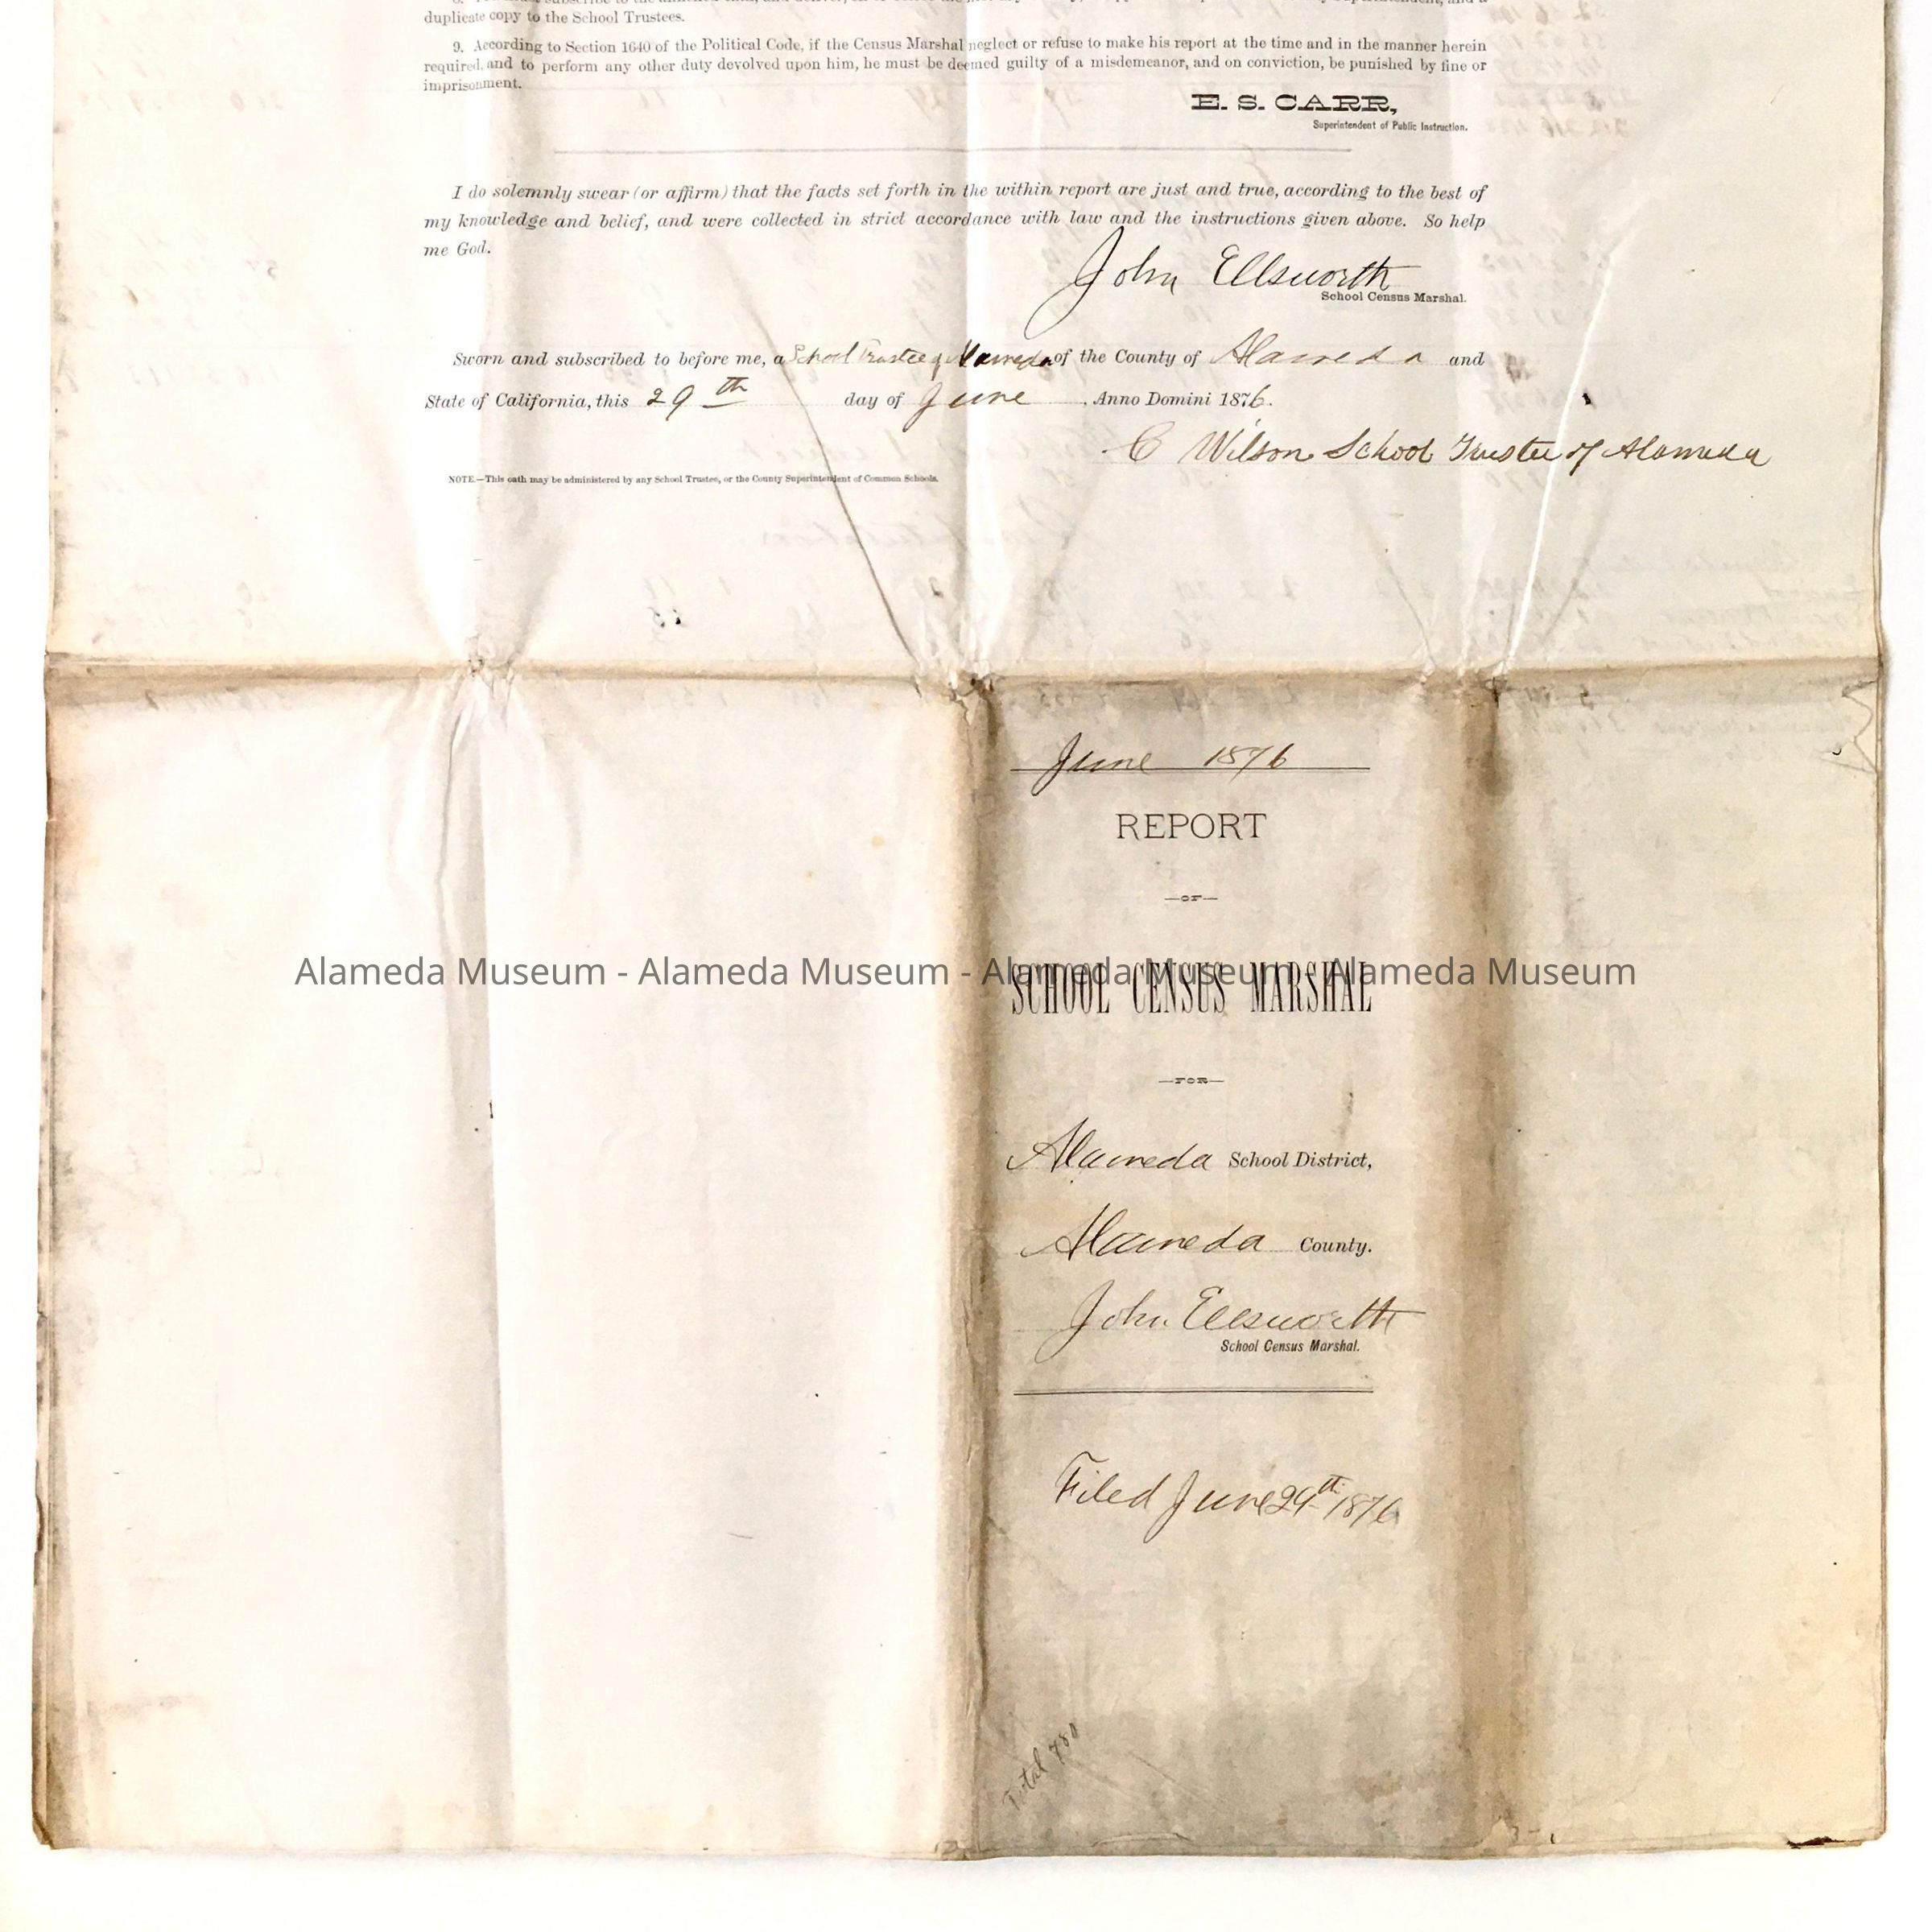 duplicate copy to the School Trustees.
9. According to Section 1640 of the Political Code, if the Census Marshal neglect or refuse to make his report at the time and in the manner herein
required, and to perform any other duty devolved upon him, he must be deemed guilty of a misdemeanor, and on conviction, be punished by fine or
imprisonment.
E. S. CARR,
Superintendent of Public Instruction.
I do solemnly swear (or affirm) that the facts set forth in the within report are just and true, according to the best of
my knowledge and belief, and were collected in strict accordance with law and the instructions given above. So help
me God.
John Ellsworth
School Census Marshal.
Sworn and subscribed to before me, a School Trustee of Alameda of the County of Alameda and
State of California, this 29th day of June, Anno Domini 1876.
C Wilson School Trustee of Alameda
NOTE.—This oath may be administered by any School Trustee, or the County Superintendent of Common Schools.
June 1876
REPORT
—OF—
Alameda Museum - Alameda Museum - Alameda Museum - Alameda Museum
SCHOOL CENSUS MARSHAL
—FOR—
Alameda School District,
Alameda County.
John Ellsworth
School Census Marshal.
Filed June 29th 1876
Total 780